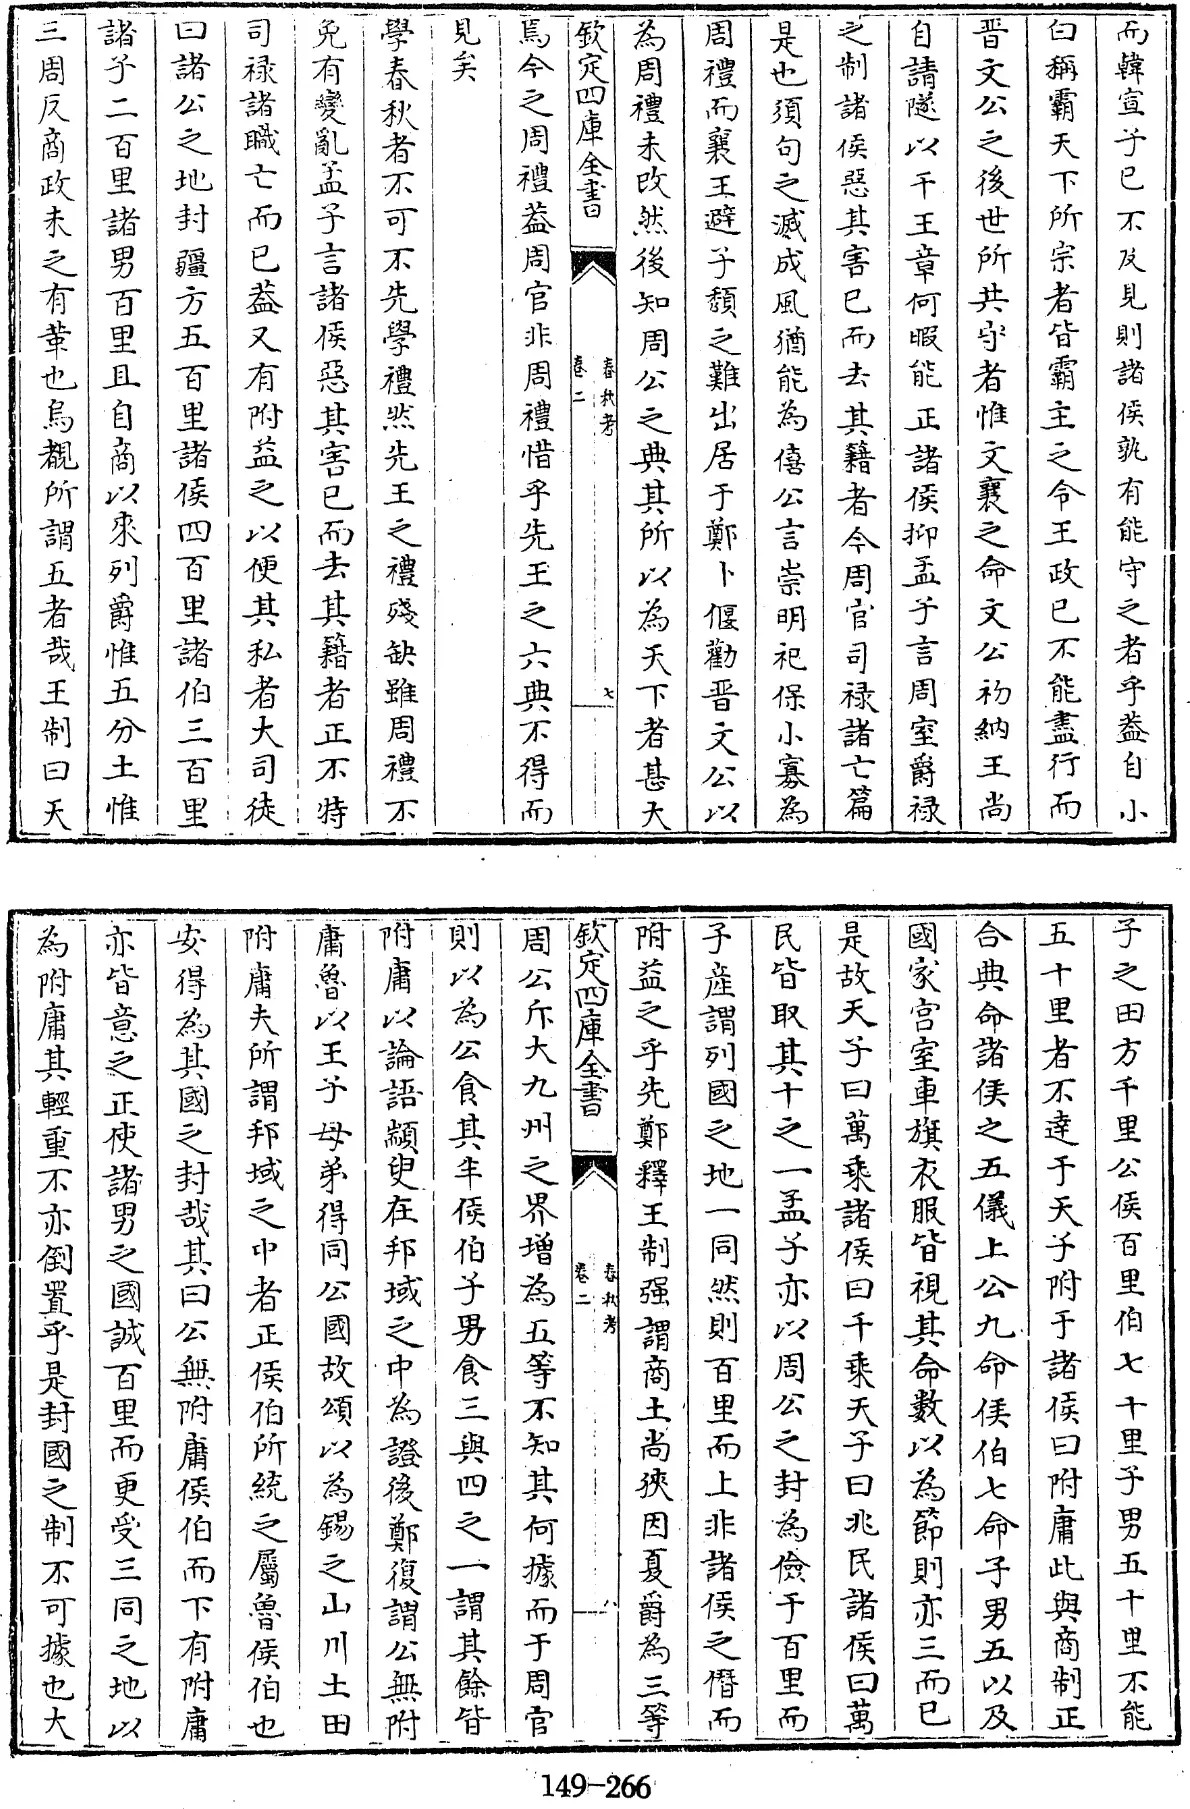 而韓宣子已不及見則諸侯孰有能守之者乎葢自小
白稱霸天下所宗者皆霸主之令王政已不能盡行而
晋文公之後世所共守者惟文襄之命文公初納王尚
自請隧以干王章何暇能正諸侯抑孟子言周室爵禄
之制諸侯惡其害已而去其籍者今周官司禄諸亡篇
是也須句之滅成風猶能為僖公言崇明祀保小寡為
周禮而襄王避子頽之難出居于鄭卜偃勸晋文公以
為周禮未改然後知周公之典其所以為天下者甚大
欽定四庫全書
春秋考
卷二
七
焉今之周禮葢周官非周禮惜乎先王之六典不得而
見矣
學春秋者不可不先學禮然先王之禮殘缺雖周禮不
免有變亂孟子言諸侯惡其害已而去其籍者正不特
司禄諸職亡而已葢又有附益之以便其私者大司徒
曰諸公之地封疆方五百里諸侯四百里諸伯三百里
諸子二百里諸男百里且自商以來列爵惟五分土惟
三周反商政未之有革也烏覩所謂五者哉王制曰天
子之田方千里公侯百里伯七十里子男五十里不能
五十里者不達于天子附于諸侯曰附庸此與商制正
合典命諸侯之五儀上公九命侯伯七命子男五以及
國家宫室車旗衣服皆視其命數以為節則亦三而已
是故天子曰萬乘諸侯曰千乘天子曰兆民諸侯曰萬
民皆取其十之一孟子亦以周公之封為儉于百里而
子產謂列國之地一同然則百里而上非諸侯之僭而
附益之乎先鄭釋王制强謂商土尚狹因夏爵為三等
欽定四庫全書
春秋考
卷二
八
周公斥大九州之界增為五等不知其何據而于周官
則以為公食其半侯伯子男食三與四之一謂其餘皆
附庸以論語顓臾在邦域之中為證後鄭復謂公無附
庸魯以王子母弟得同公國故頌以為錫之山川土田
附庸夫所謂邦域之中者正侯伯所統之屬魯侯伯也
安得為其國之封哉其曰公無附庸侯伯而下有附庸
亦皆意之正使諸男之國誠百里而更受三同之地以
為附庸其輕重不亦倒置乎是封國之制不可據也大
149-266